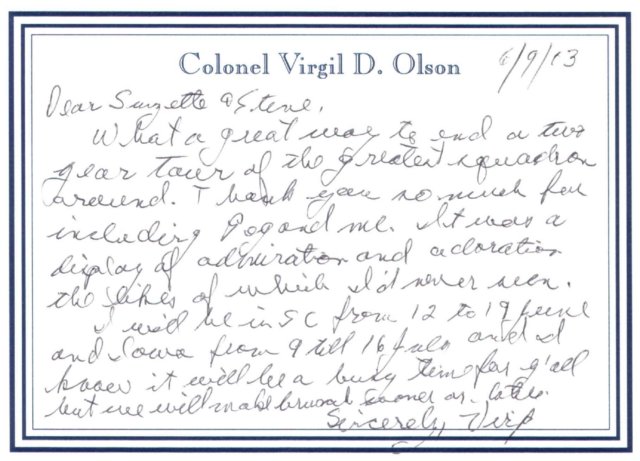 Colonel Virgil D. Olson
6/9/13
Dear Suzette & Steve,
What a great way to end a two
year tour of the greatest squadron
around. Thank you so much for
including Pog and me. It was a
display of admiration and adoration
the likes of which I'd never seen.
I will be in SC from 12 to 19 June
and Iowa from 9 till 16 July and I
know it will be a busy time for y'all
but we will make brunch sooner or later.
Sincerely, Virg